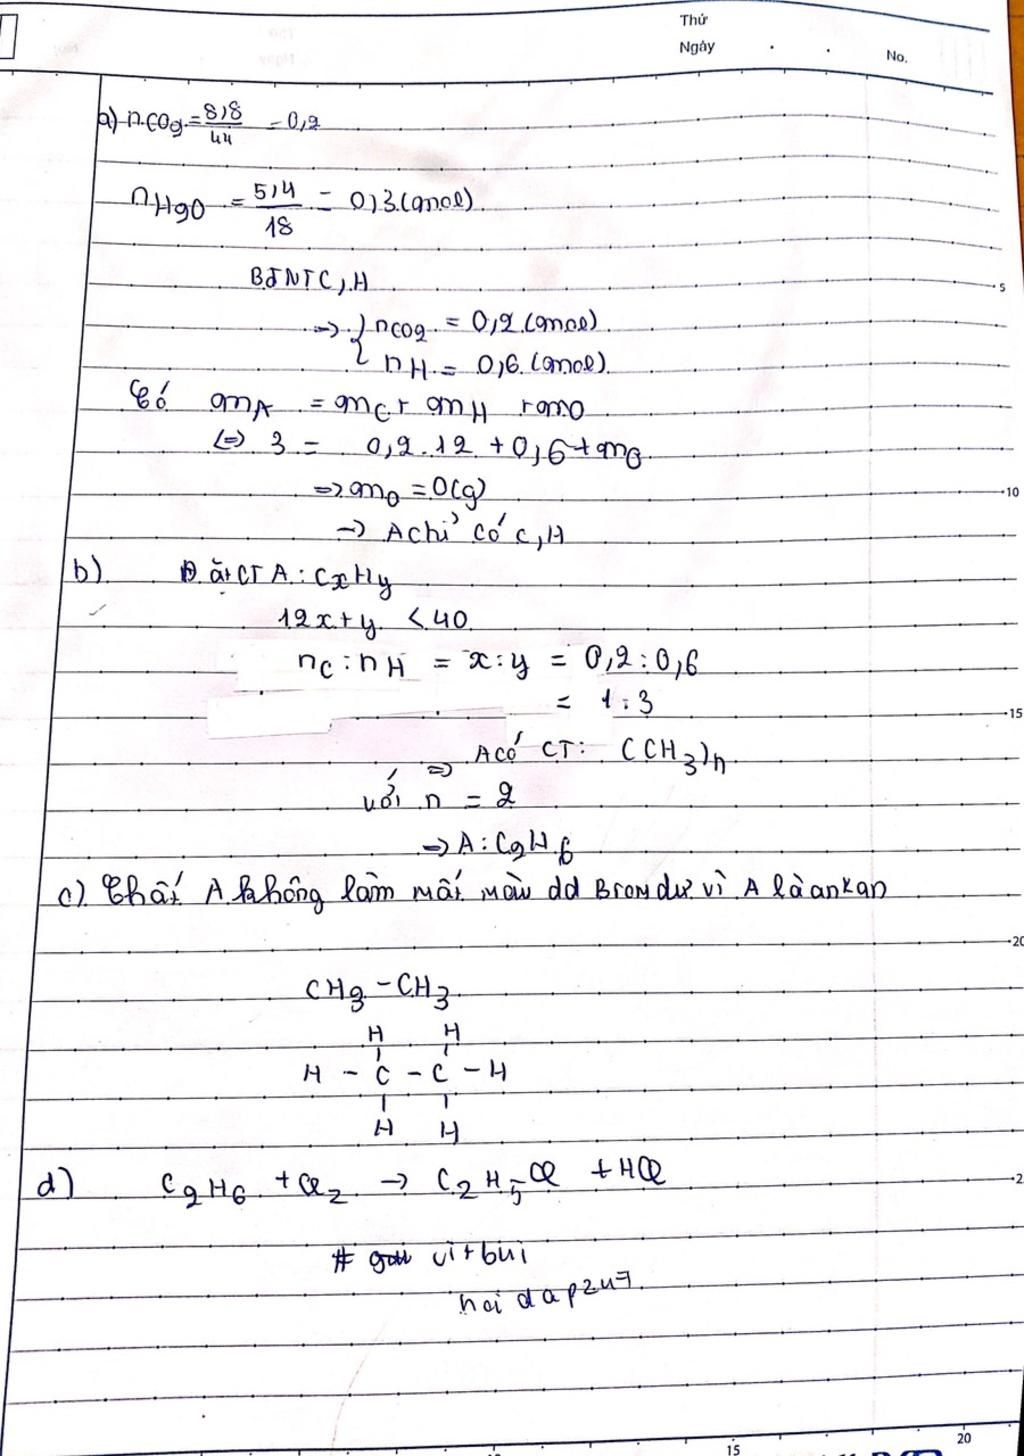 Thứ
Ngày . .
No.
a) nCO2 = 8,8/44 = 0,2
nH2O = 5,4/18 = 0,3 (mol)
BTNT C, H
→ { nCO2 = 0,2 (mol)
nH = 0,6 (mol)
Có mA = mC + mH + mO
(=) 3 = 0,2 . 12 + 0,6 + mO
5
=> mO = 0 (g)
10
→ A chỉ có C, H
b) Đặt CT A : CxHy
12x + y < 40
nC : nH = x : y = 0,2 : 0,6
= 1 : 3
15
=> A có CT: (CH3)n
với n = 2
→ A : C2H6
c) Chất A không làm mất màu dd Brom dư vì A là ankan
20
CH3 - CH3
H H
H - C - C - H
H H
d) C2H6 + Cl2 → C2H5Cl + HCl
2
# vitbui
hoidap247
15
20